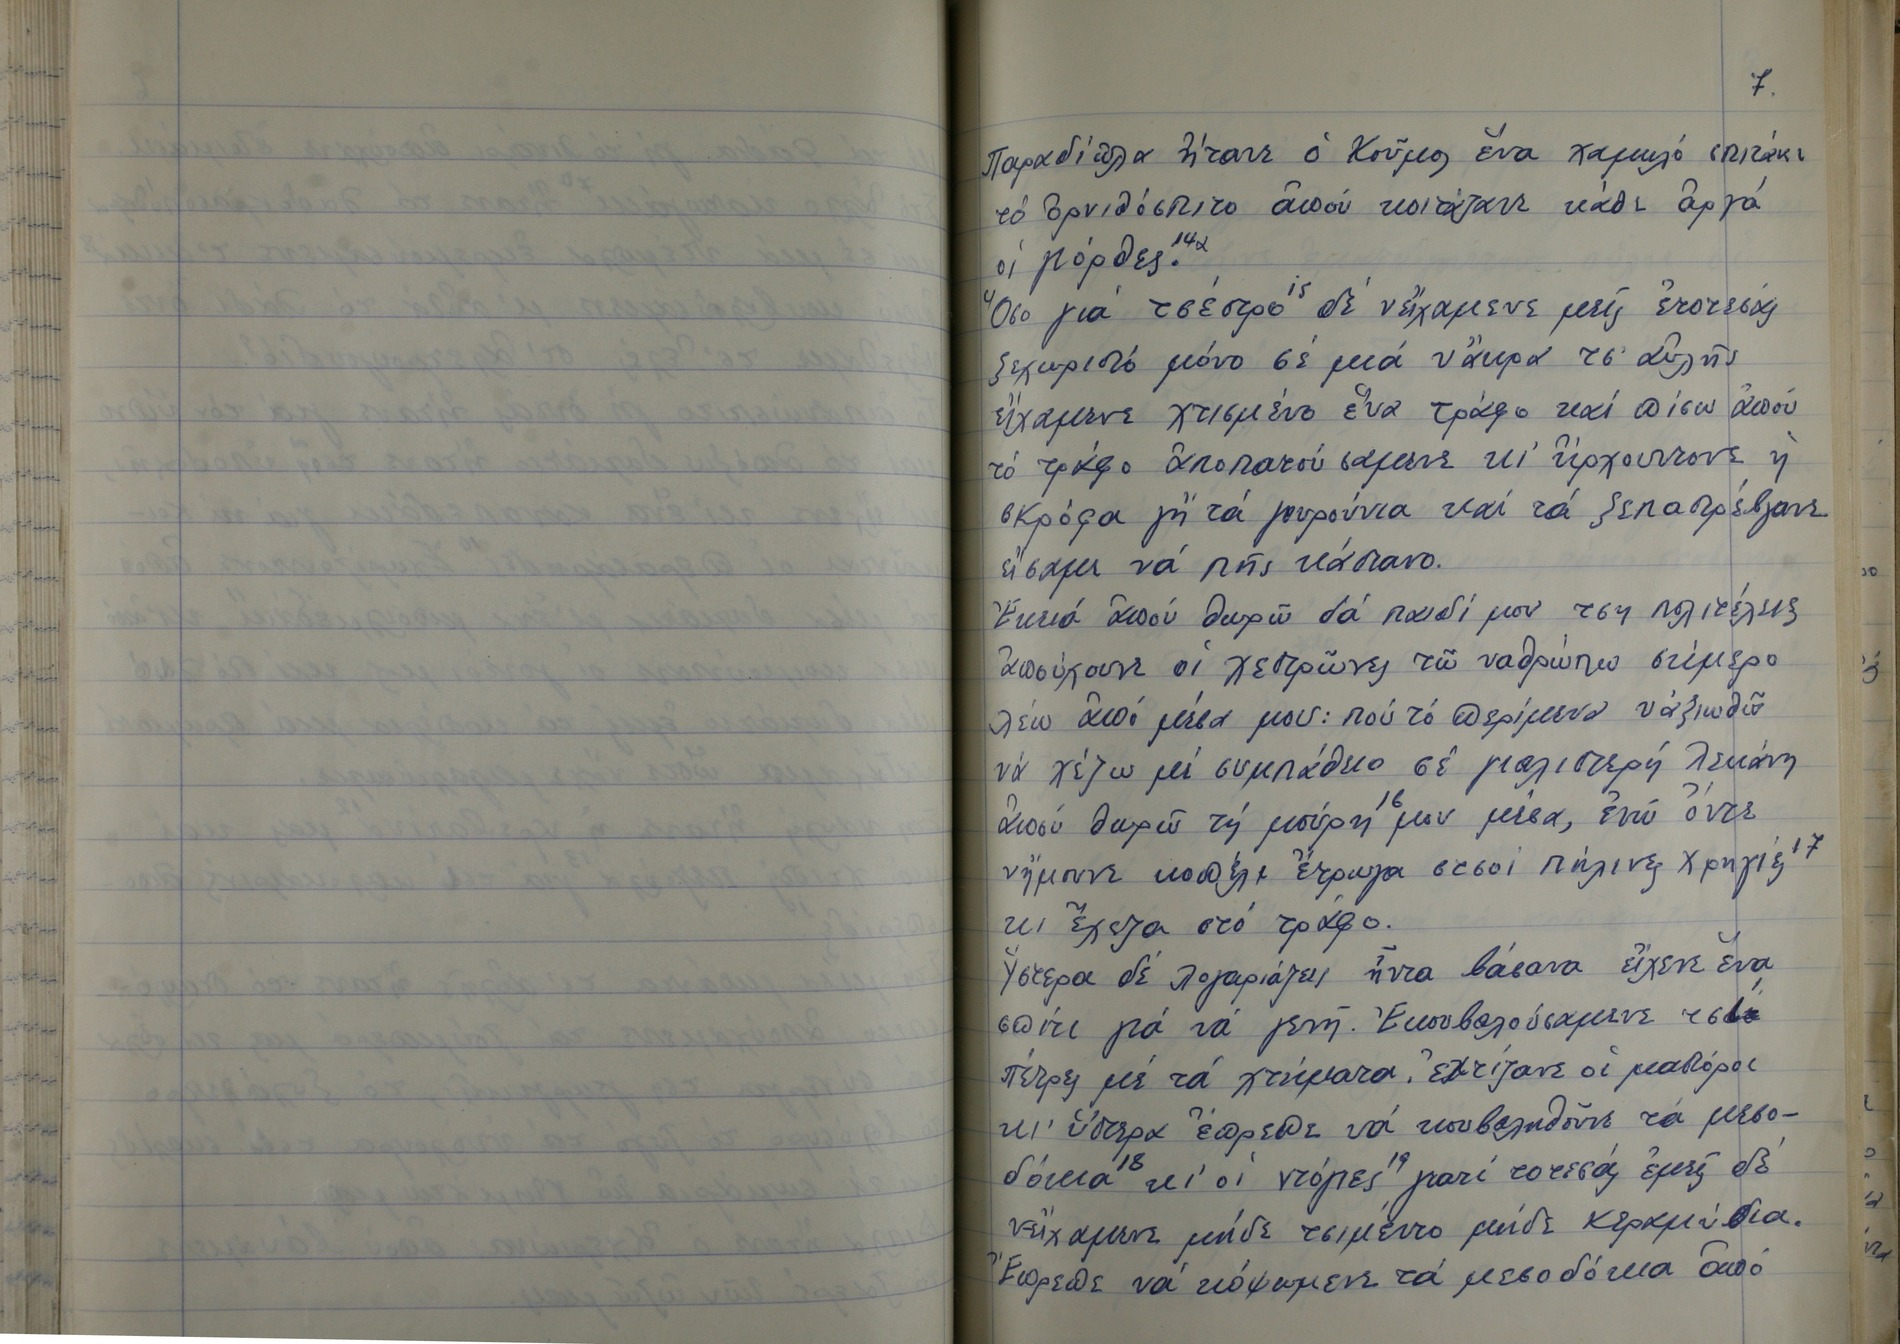 7.
Παραδίπλα ἤτανε ὁ κοῦμος ἕνα χαμηλό σπιτάκι
τό ὀρνιθόσπιτο ἀπού κοιτάζανε κάθε ἀργά
οἱ γιόρθες.14α
Ὅσο γιά τσέστρο15 δέ νεἴχαμενε μεῖς ἐτοτεσάς
ξεχωριστό μόνο σέ μιά νἄκρα τσ' αὐλῆς
εἴχαμενε χτισμένο ἕνα τράφο καί πίσω ἀπού
τό τράφο ἀποπατούσαμενε κι' ἤρχουντονε ἡ
σκρόφα γἤ τά γουρούνια καί τά ξεπαστρέβγανε
εἴσαμε νά πῆς κάστανο.
Ἐκειά ἀπού θωρῶ δά παιδί μου τση πολιτέλειες
ἀπούχουνε οἱ χεστρῶνες τῶ ναθρώπω σήμερο
λέω ἀπό μέσα μου: πού τό περίμενα νἀξιωθῶ
νά χέζω μέ συμπάθειο σέ γιαλιστερή λεκάνη
ἀπού θωρῶ τή μούρη16 μου μέσα, ἐνῶ ὄντε
νἤμουνε κοπέλι ἔτρωγα στσοί πήλινες χρηγιές17
κι ἔχεζα στό τράφο.
Ὕστερα δέ λογαριάζεις ἤντα βάσανα εἴχενε ἕνα
σπίτι γιά νά γενῆ. Ἐκουβαλούσαμενε τσί
πέτρες μέ τά χτήματα. ἐχτίζανε οἱ μαστόροι
κι' ὕστερα ἔπρεπε νά κουβαληθοῦνε τά μεσο-
δόκια18 κι' οἱ ντόγιες19 γιατί τοτεσάς ἐμεῖς δέ
νεἴχαμενε μήδε τσιμέντο μήδε κεραμύδια.
Ἔπρεπε νά κόψωμενε τά μεσοδόκια ἀπό